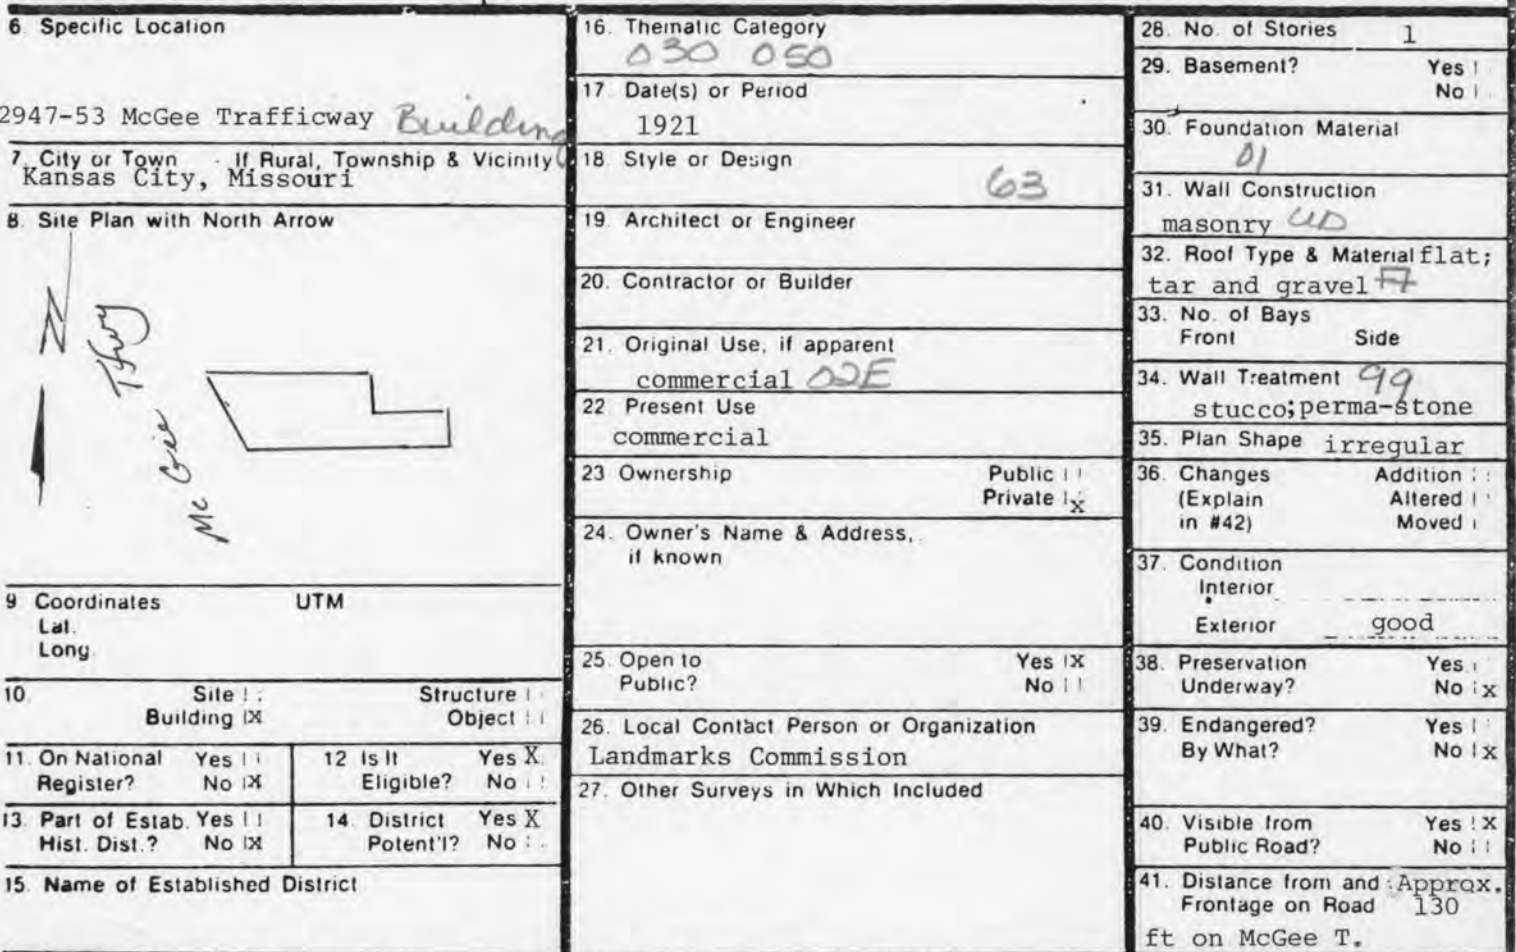 6 Specific Location
2947-53 McGee Trafficway Building
7. City or Town If Rural, Township & Vicinity
Kansas City, Missouri
8. Site Plan with North Arrow
N
McGee Tfwy
9 Coordinates UTM
Lat.
Long.
10. Site Structure
Building X Object
11. On National Yes
Register? No X
12 Is It Yes X
Eligible? No
13. Part of Estab. Yes
Hist. Dist.? No X
14. District Yes X
Potent'l? No
15. Name of Established District
16. Thematic Category
030 050
17 Date(s) or Period
1921
18. Style or Design
63
19. Architect or Engineer
20. Contractor or Builder
21. Original Use, if apparent
commercial 02E
22 Present Use
commercial
23 Ownership Public
Private X
24. Owner's Name & Address,
if known
25. Open to Yes X
Public? No
26. Local Contact Person or Organization
Landmarks Commission
27. Other Surveys in Which Included
28. No. of Stories 1
29. Basement? Yes
No
30. Foundation Material
01
31. Wall Construction
masonry UD
32. Roof Type & Material flat;
tar and gravel
33. No. of Bays
Front Side
34. Wall Treatment 99
stucco; perma-stone
35. Plan Shape irregular
36. Changes Addition
(Explain Altered
in #42) Moved
37. Condition
Interior
Exterior good
38. Preservation Yes
Underway? No X
39. Endangered? Yes
By What? No X
40. Visible from Yes X
Public Road? No
41. Distance from and Approx.
Frontage on Road 130
ft on McGee T.